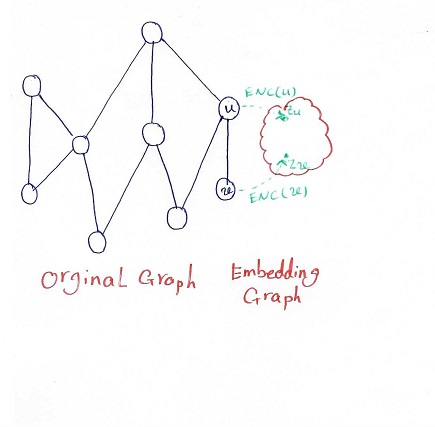 ENC(u)
u
Zu
Zv
v
ENC(v)
Orginal Graph
Embedding
Graph